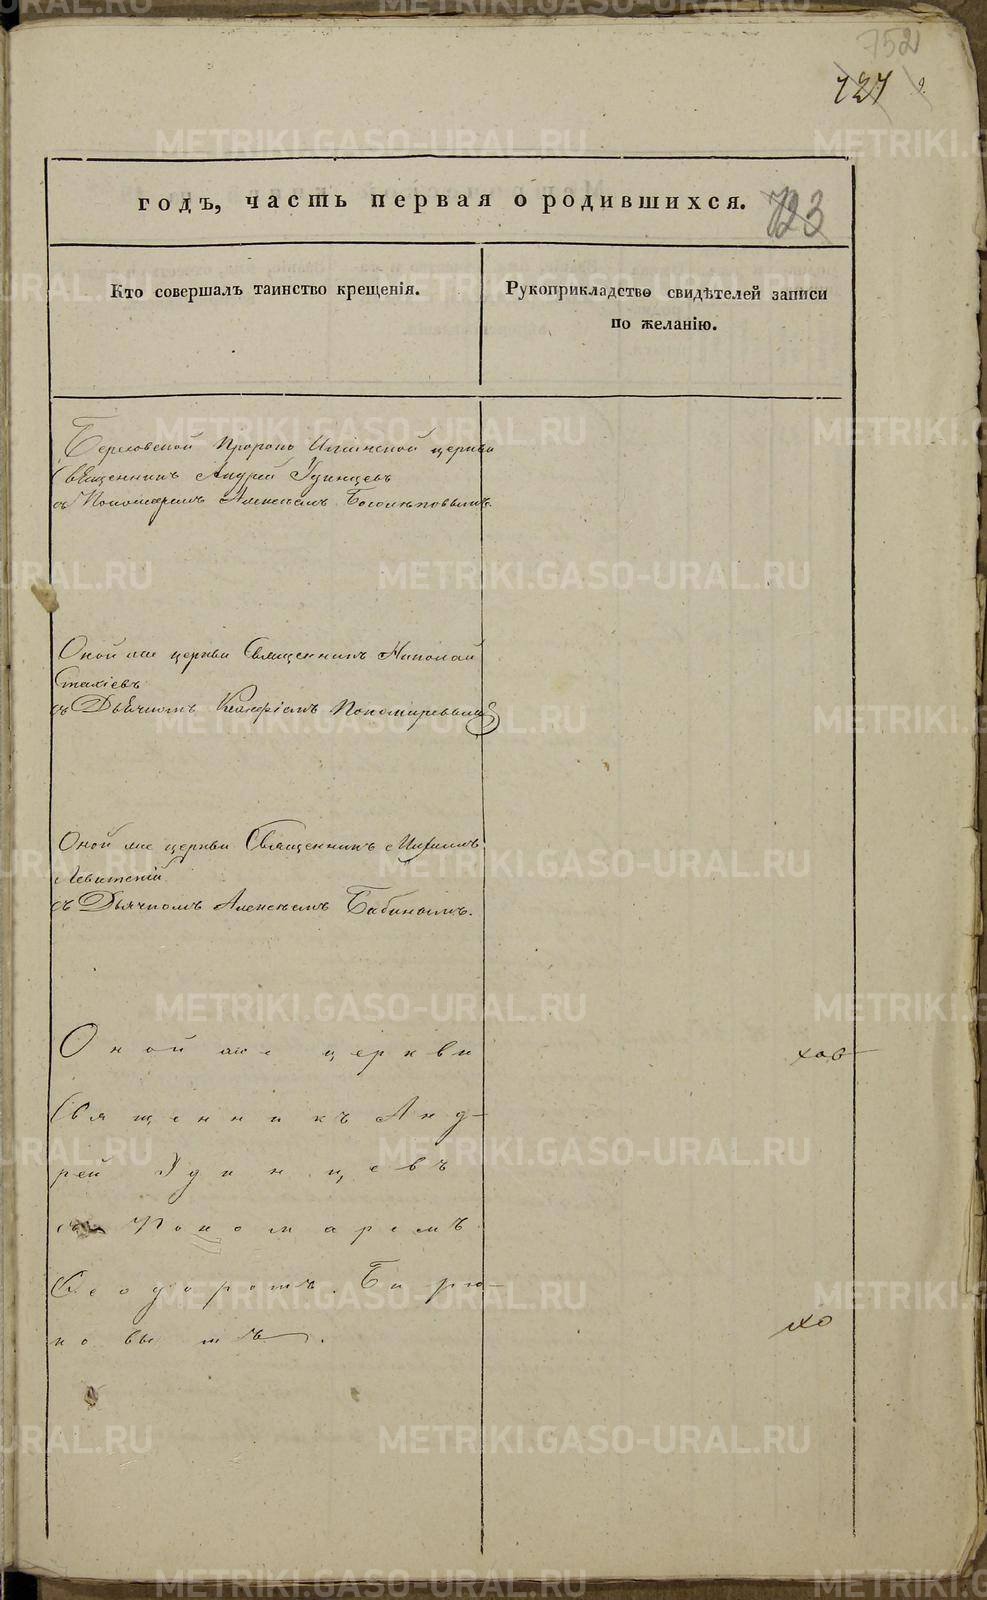 752
727
годъ, часть первая о родившихся.
723
Кто совершалъ таинство крещенія.
Рукоприкладство свидѣтелей записи
по желанію.
Пророко Ильинской церкви
Священникъ Андрей Удинцевъ
съ Пономаремъ Алексѣемъ Боголѣповымъ.
Оной же церкви Священникъ Николай
Стахіевъ
съ Дьячкомъ Пономаревымъ
Оной же церкви Священникъ
Левитскій
съ Дьячкомъ Алексѣемъ Бабинымъ.
Оной же церкви
Священникъ Анд-
рей Удинцевъ
съ Пономаремъ
Ѳеодоромъ Бирю-
ковымъ.
METRIKI.GASO-URAL.RU